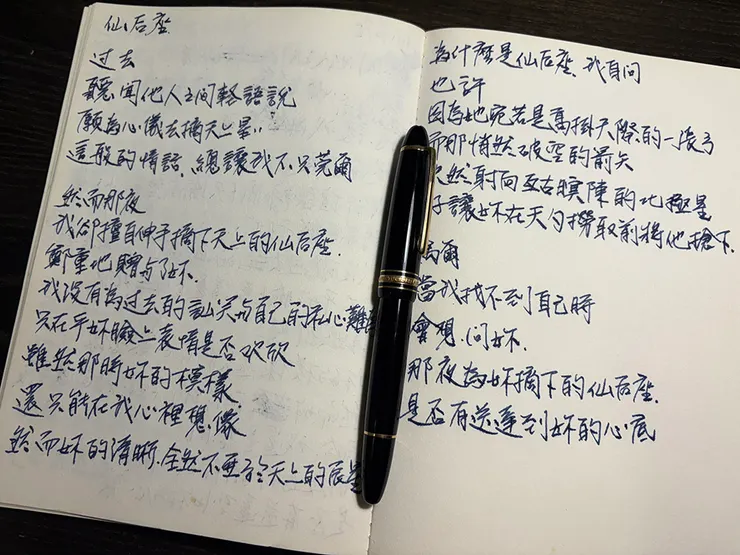 仙后座
過去
聽聞他人之間輕語說
願為心儀去摘天上星..
這般的情話,總讓我不只莞爾
然而那夜
我卻擅自伸手摘下天上的仙后座.
鄭重地贈与了妳.
我沒有為過去的訕笑与自己的私心難
只在乎妳臉上表情是否欢欣
雖然那時妳的模樣
還只能在我心裡想像
然而妳的清晰.全然不亞於天上的辰星
為什麼是仙后座.我自問
也許
因為她宛若是高掛天際的一張弓
而那悄然破空的箭矢
然射向亘古瞑陳的北極星
讓妳在天勺撈取前將他搶下.
爾
當我找不到自己時
會想.問妳.
那夜為妳摘下的仙后座.
是否有送達到妳的心底